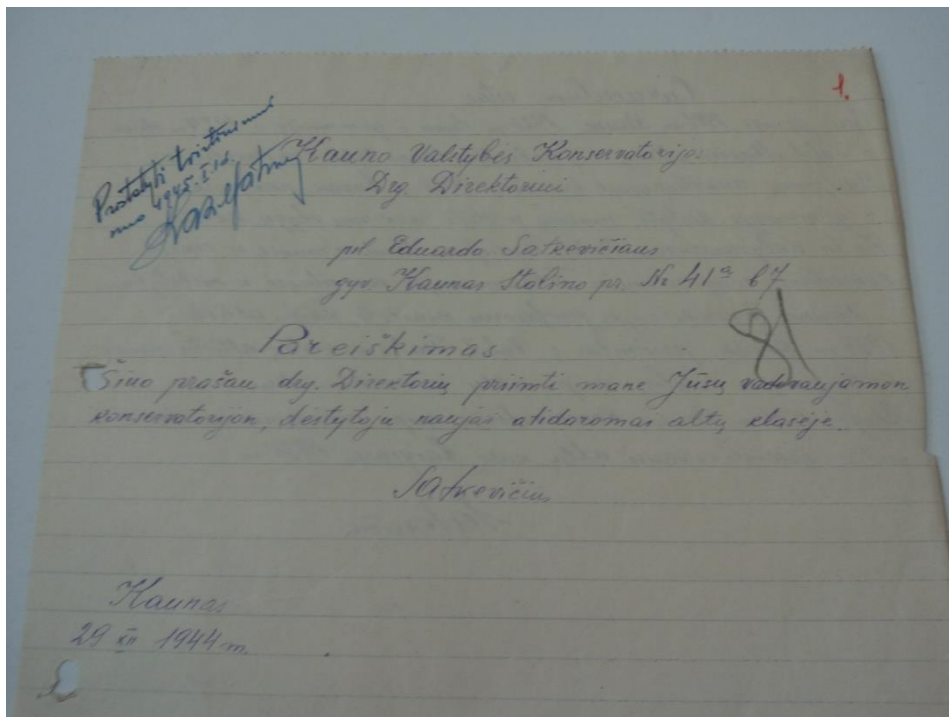 1.
Pristatyti tvirtinimui
nuo 1945.I.1d.
Kauno Valstybės Konservatorijos
Drg Direktoriui
pil. Eduardo Satkevičiaus
gyv. Kaunas Stalino pr. Nr 41ª b 7
81
Pareiškimas
Šiuo prašau drg. Direktorių priimti mane Jūsų vadovaujamon
konservatorijon, dėstytoju naujai atidaromoj altų klasėje.
Satkevičius
Kaunas
29 XII 1944 m.